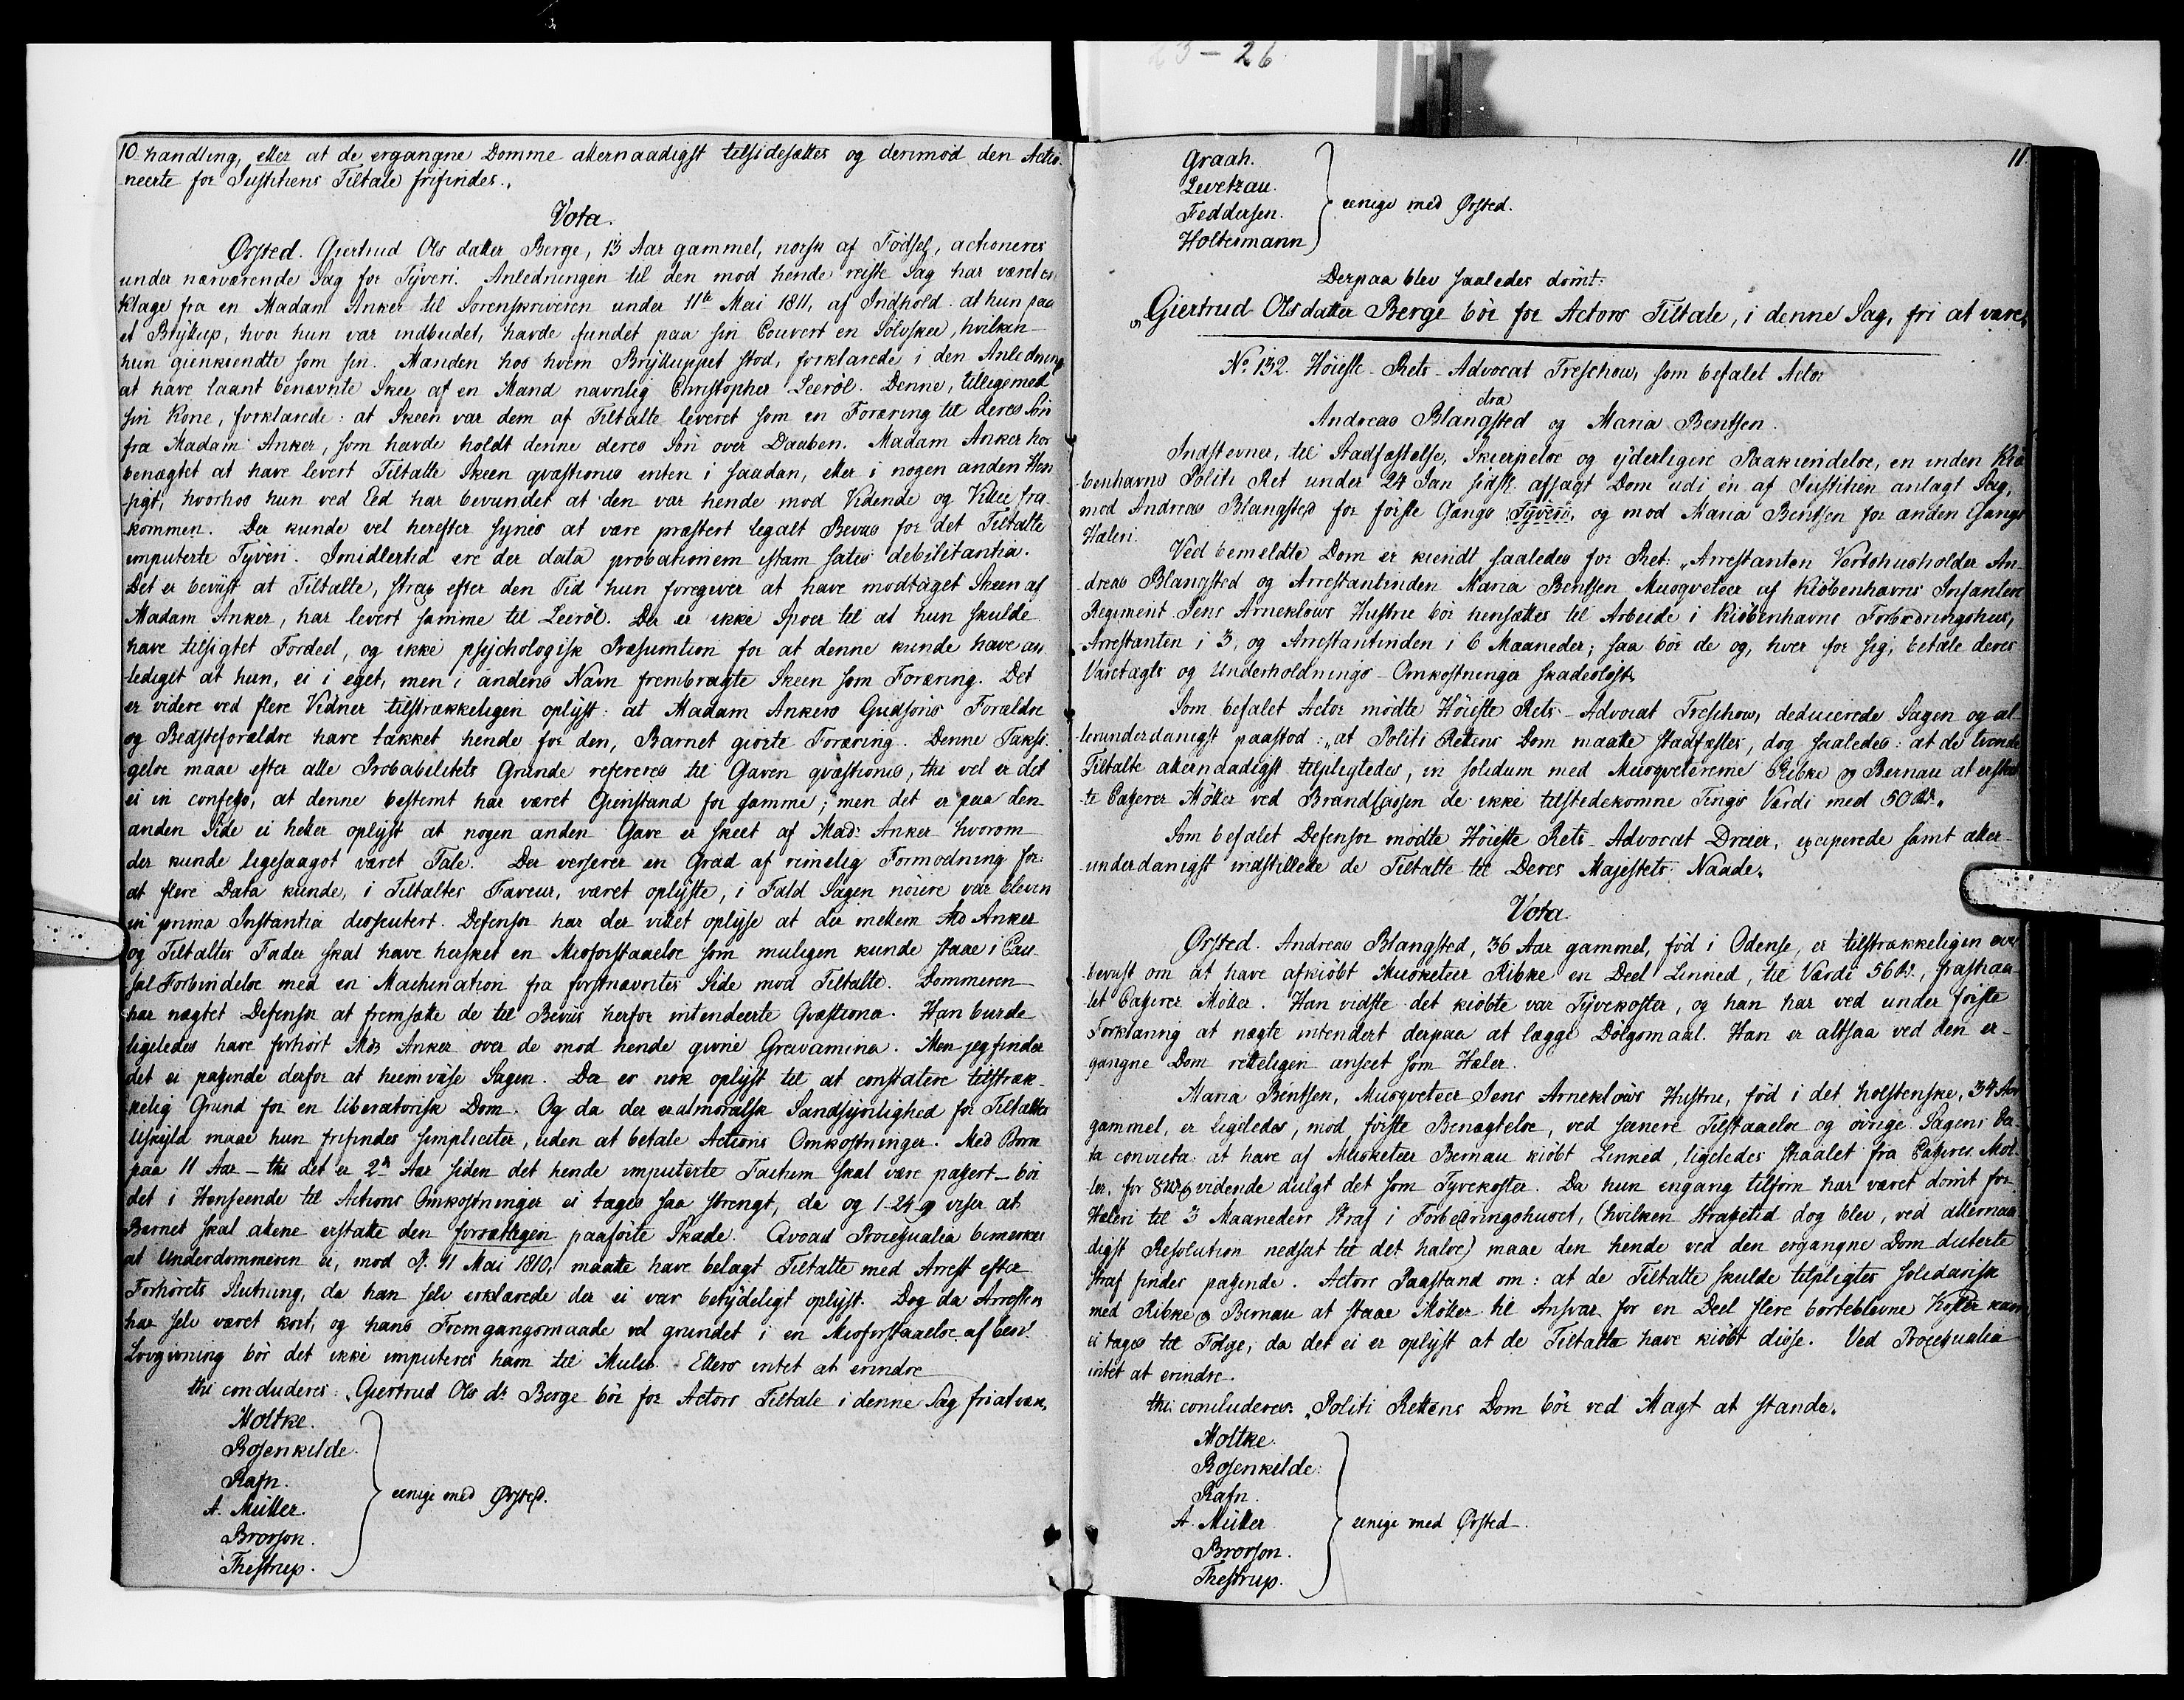 23-26
10 handling, eller at de ergangne Domme allernaadigst tilsidesættes og derimod den Actio-
neerte for Justitiens Tiltale frifindes.„
Vota.
Ørsted. Giertrud Ols datter Berge, 13 Aar gammel, norsk af Födsel, actioneres
under nærværende Sag for Tyveri. Anledningen til den mod hende reiste Sag har været en
Klage fra en Madam Anker til Sorenskriveren under 11te Mai 1811, af Indhold: at hun paa
et Bryllup, hvor hun var indbudet, havde fundet paa sin Couvert en Sölvskee, hvilken
hun gienkiendte som sin. Manden hos hvem Brylluppet stod, forklarede i den Anledning
at have laant benævnte Skee af en Mand navnlig Christopher Leeröl. Denne, tilligemed
sin Kone, forklarede: at Skeen var dem af Tiltalte leveret som en Foræring til deres Sön
fra Madam Anker, som havde holdt denne deres Sön over Daaben. Madam Anker har
benægtet at have levert Tiltalte Skeen qvæstionis enten i saadan, eller i nogen anden Hen-
sigt, hvorhos hun ved Eed har bevundet at den var hende mod Vidende og Villie fra-
kommen. Der kunde vel herefter synes at være præstert legalt Beviis for det Tiltalte
imputerte Tyveri. Imidlertid ere der data probationem istam satis debilitantia.
Det er beviist at Tiltalte, strax efter den Tid hun foregiver at have modtaget Skeen af
Madam Anker, har levert samme til Leeröl. Der er ikke Spoer til at hun skulde
have tilsigtet Fordeel, og ikke psychologisk Præsumtion for at denne kunde have an-
lediget at hun, ei i eget, men i andens Navn frembragte Skeen som Foræring. Det
er videre ved flere Vidner tilstrækkeligen oplyst: at Madam Ankers Gudsöns Forældre
og Bedsteforældre have takket hende for den, Barnet giorte Foræring. Denne Taksi-
gelse maae efter alle Probabilitets Grunde refereres til Gaven qvæstionis, thi vel er det
ei in confesso, at denne bestemt har været Gienstand for samme; men det er paa den
anden Side ei heller oplyst at nogen anden Gave er skeet af Mad: Anker hvorom
der kunde ligesaagot været Tale. Der verserer en Grad af rimelig Formodning for:
at flere Data kunde, i Tiltaltes Faveur, været oplyste, i Fald Sagen nöiere var bleven
in prima Instantia discuteert. Defensor har der villet oplyse at der mellem Md Anker
og Tiltaltes Fader skal have hersket en Misforstaaelse som muligen kunde staae i Cau-
sal Forbindelse med en Machination fra förstnævntes Side mod Tiltalte. Dommeren
har nægtet Defensor at fremsætte de til Beviis herfor intendeerte Qvæstiona. Han burde
ligeledes have forhört Md Anker over de mod hende givne Gravamina. Men jeg finder
det ei passende derfor at hiemvise Sagen. Da er nok oplyst til at constatere tilstræk-
kelig Grund for en liberatorisk Dom. Og da der er al moralsk Sandsynlighed for Tiltaltes
Uskyld maae hun frifindes simpliciter, uden at betale Actions Omkostninger. Med Barn
paa 11 Aar - thi det er 2de Aar siden det hende imputerte Factum skal være passert - bör
det i Henseende til Actions Omkostninger ei tages saa strengt, da og 1-24-9 viser at
Barnet skal alene erstatte den forsætligen paaförte Skade. Qvoad Processualia bemærkes
at Underdommeren ei, mod P. 11 Mai 1810, maatte have belagt Tiltalte med Arrest efter
Forhörets Slutning, da han selv erklærede der ei var betydeligt oplyst. Dog da Arresten
har selv været kort, og hans Fremgangsmaade vel grundet i en Misforstaaelse af ben:
Lovgivning bör det ikke imputeres ham til Mulct. Ellers intet at erindre
thi concluderes: „Giertrud Ols dr Berge bör for Actors Tiltale i denne Sag fri at være„
Moltke.
Rosenkilde.
Rafn.
A. Müller.
Brorson.
Thestrup.
eenige med Ørsted.
11.
Graah.
Levetzau.
Feddersen.
Holtermann
eenige med Ørsted.
Derpaa blev saaledes dömt:
„Giertrud Olsdatter Berge bör for Actors Tiltale, i denne Sag, fri at være„
No 132. Höieste-Rets-Advocat Treschow, som befalet Actor
ctra
Andreas Blangsted og Maria Bentsen.
Indstevner, til Stadfæstelse, Skierpelse og yderligere Paakiendelse, en inden Kiö-
benhavns Politi Ret under 24 Jan sidstl. afsagt Dom udi en af Justitien anlagt Sag,
mod Andreas Blangsted for förste Gangs Tyveri, og mod Maria Bentsen for anden Gangs
Hæleri.
Ved bemeldte Dom er kiendt saaledes for Ret: „Arrestanten Vertshusholder An-
dreas Blangsted og Arrestantinden Maria Bentsen Musqveteer af Kiöbenhavns Infanterie
Regiment Jens Arneklows Hustrue bör hensættes til Arbeide i Kiöbenhavns Forbedringshus,
Arrestanten i 3, og Arrestantinden i 6 Maaneder; saa bör de og, hver for sig, betale deres
Varetægts og Underholdnings-Omkostninger skadeslöst„
Som befalet Actor mödte Höieste Rets-Advocat Treschow, deducerede Sagen og al-
lerunderdanigst paastod: „at Politi Rettens Dom maatte stadfæstes, dog saaledes: at de tvende
Tiltalte allernaadigst tilpligtedes, in solidum med Musqveterrerne Ribke og Bernau at erstat-
te Casserer Möller ved Brandcassen de ikke tilstedekomne Tings Værdi med 50 Rd„
Som befalet Defensor mödte Höieste Rets-Advocat Dreier, exciperede samt aller-
underdanigst indstillede de Tiltalte til Deres Majestets Naade.
Vota
Ørsted. Andreas Blangsted, 36 Aar gammel, föd i Odense, er tilstrækkeligen over-
beviist om at have afkiöbt Musketeer Ribke en Deel Linned, til Værdi 56 Rd, frastiaa-
let Casserer Möller. Han vidste det kiöbte var Tyvekoster, og han har ved under förste
Forklaring at nægte intendert derpaa at lægge Dölgsmaal. Han er altsaa ved den er-
gangne Dom retteligen anseet som Hæler.
Maria Bentsen, Musqveteer Jens Arneklows Hustru, föd i det holstenske, 34 Aar
gammel, er ligeledes, mod förste Benægtelse, ved senere Tilstaaelse og övrige Sagens Da-
ta convicta: at have af Musketeer Bernau kiöbt Linned, ligeledes stiaalet fra Casserer Möl-
ler, for 8 vidende dulgt det som Tyvekoster. Da hun engang tilforn har været dömt for
Hæleri til 3 Maaneders Straf i Forbedringshuset, (hvilken Strafetid dog blev, ved allernaa-
digst Resolution nedsat til det halve) maae den hende ved den ergangne Dom dicterte
Straf findes passende. Actors Paastand om: at de Tiltalte skulde tilpligtes solidarisk
med Ribke og Bernau at staae Möller til Ansvar for en Deel flere borteblevne Koster kan
ei tages til Fölge, da det ei er oplyst at de Tiltalte have kiöbt disse. Ved Processualia
intet at erindre.
thi concluderes: „Politi Rettens Dom bör ved Magt at stande„
Moltke.
Rosenkilde.
Rafn.
A. Müller
Brorson.
Thestrup.
eenige med Ørsted.